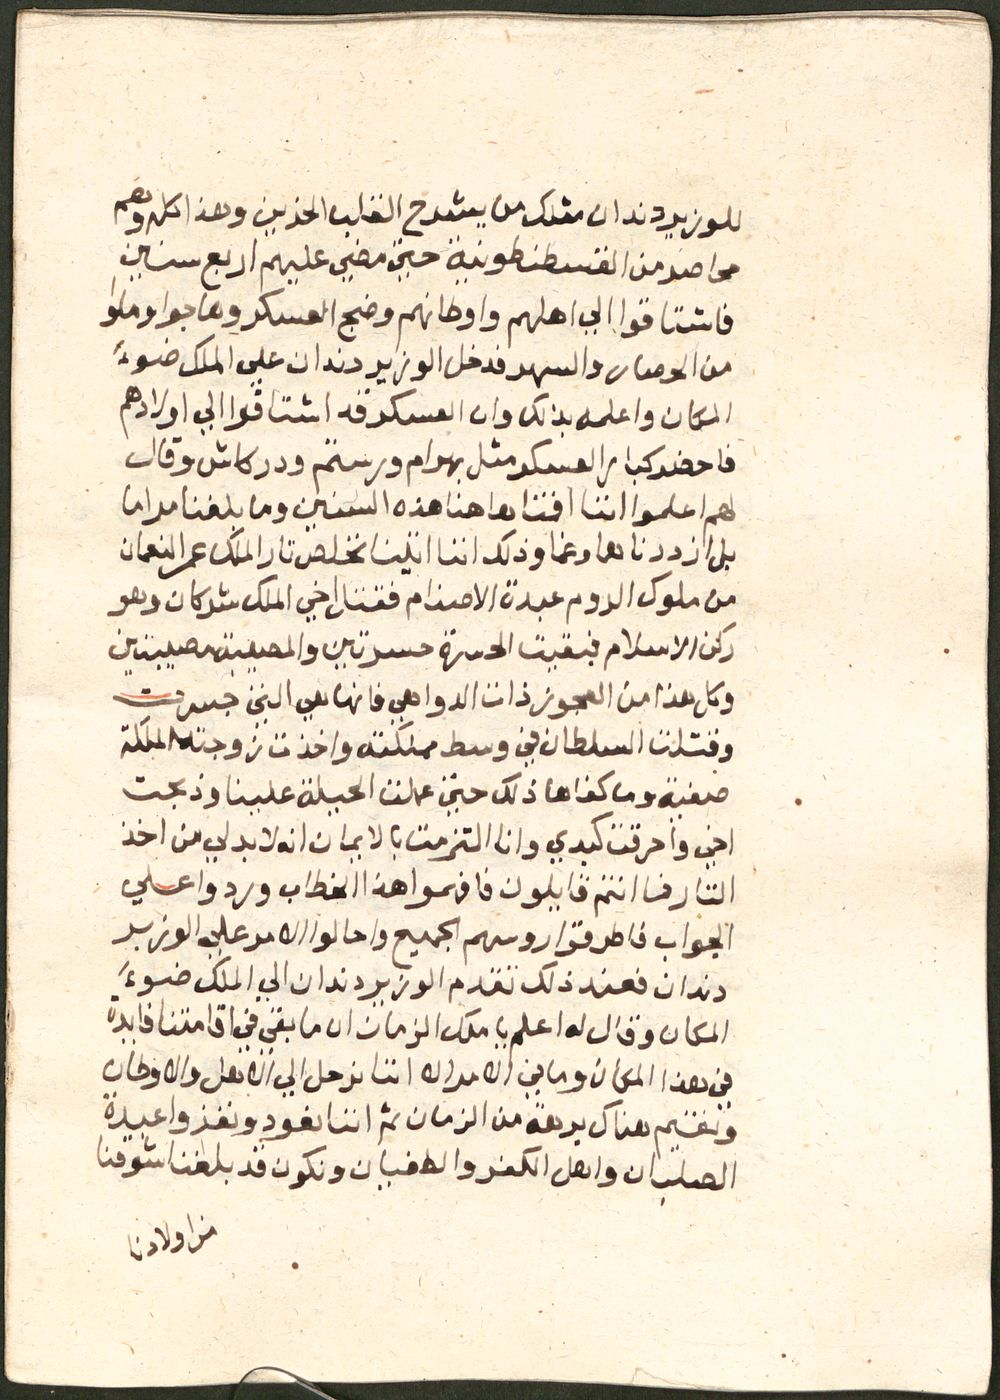 للوزير دندان مثلك من يشرح القلب الحزين وهذا كله وهم
محاصرمن القسطنطونية حتي مضي عليهم اربع سنين
فاشتاقوا الي اهلهم واوطانهم وضج العسكر وهاجوا وملوا
من الحصار والسهر فدخل الوزير دندان علي الملك ضوء
المكان واعلمه بذلك وان العسكر قد اشتاقوا الي اولادهم
فاحضر كبار العسكر مثل بهرام ورستم ودركاش وقال
لهم اعلموا اننا اقمنا هاهنا هذه السنين وما بلغنا مراما
بل ازددنا هما وغما وذلك اننا اتينا نخلص تار الملك عمر النعمان
من ملوك الروم عبدة الاصنام فقتل اخي الملك شركان وهو
ركن الاسلام فبقيت الحسرة حسرتين والمصيبة مصيبتين
وكل هذا من العجوز ذات الدواهي فانها هي التي جسرت
وقتلت السلطان في وسط مملكته واخذت زوجته الملكة
صفية وما كفاها ذلك حتي عملت الحيلة علينا وذبحت
اخي واحرقت كبدي وانا التزمت بالايمان انه لابد لي من اخذ
التار فما انتم قايلون فافهموا هذا الخطاب وردوا علي
الجواب فاطرقوا روسهم الجميع واحالوا الامر علي الوزير
دندان فعند ذلك تقدم الوزير دندان الي الملك ضوء
المكان وقال له اعلم يا ملك الزمان ان ما بقي في اقامتنا فايدة
في هذا المكان وما بقي الامر الا اننا نرحل الي الاهل والاوطان
ونقيم هناك برهة من الزمان ثم اننا نعود ونغزوا عبدة
الصلبان واهل الكفر والطغيان ونكون قد بلغنا شوقنا
من اولادنا